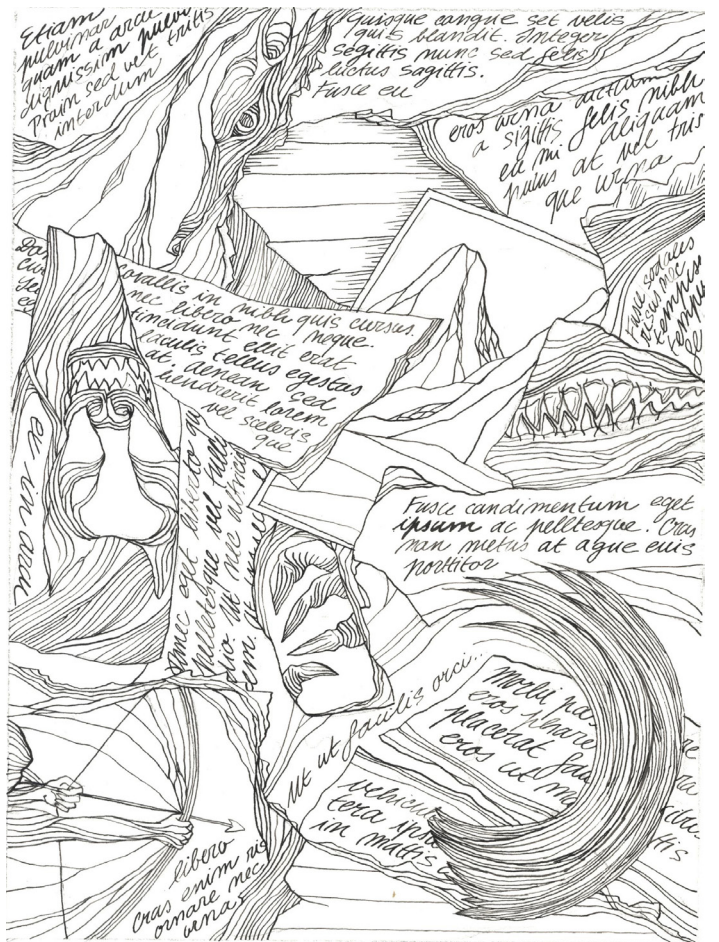 Etiam
pulvinar
quam a arcu
dignissim pulvi
Proin sed vet tritis
interdum
Quisque congue set velis
quis blandit. Integer
segittis nunc sed felis
luctus sagittis.
Fusce eu
eros urna
a sigittis felis nibh
eu mi aliquam
purus at vel tris
que urna
Fusce sodales
risus nec
tempus
tempus
ovallis in nibh quis cursus.
nec libero nec neque.
tincidunt ellit erat
iaculis tellus egestas
at aenean sed
hendrerit lorem
vel sceleris
que
eu in arcu
nec eget liberto
pelltesque vel tull
dio Ut nec
sem. It
Fusce candimentum eget
ipsum ac pelltesque. Cras
nan metus at ague euis
porttitor
Ut ut faulis orci...
Morbi pas
eros phare
placerat fau
eros ut ma
vehicu
tera ipsu
in mattis
ttis
libero
cras enim ris
ornare nec
urnas